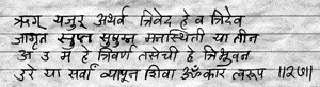 ऋग् यजुर् अथर्व त्रिवेद हे व त्रिदेव
जागृत सुप्त सुषुप्त मनःस्थिती या तीन
अ उ म हे त्रिवर्ण तसेची हे त्रिभुवन
उरे या सर्वा व्यापून शिवा ॐकार स्वरूप ॥२७॥